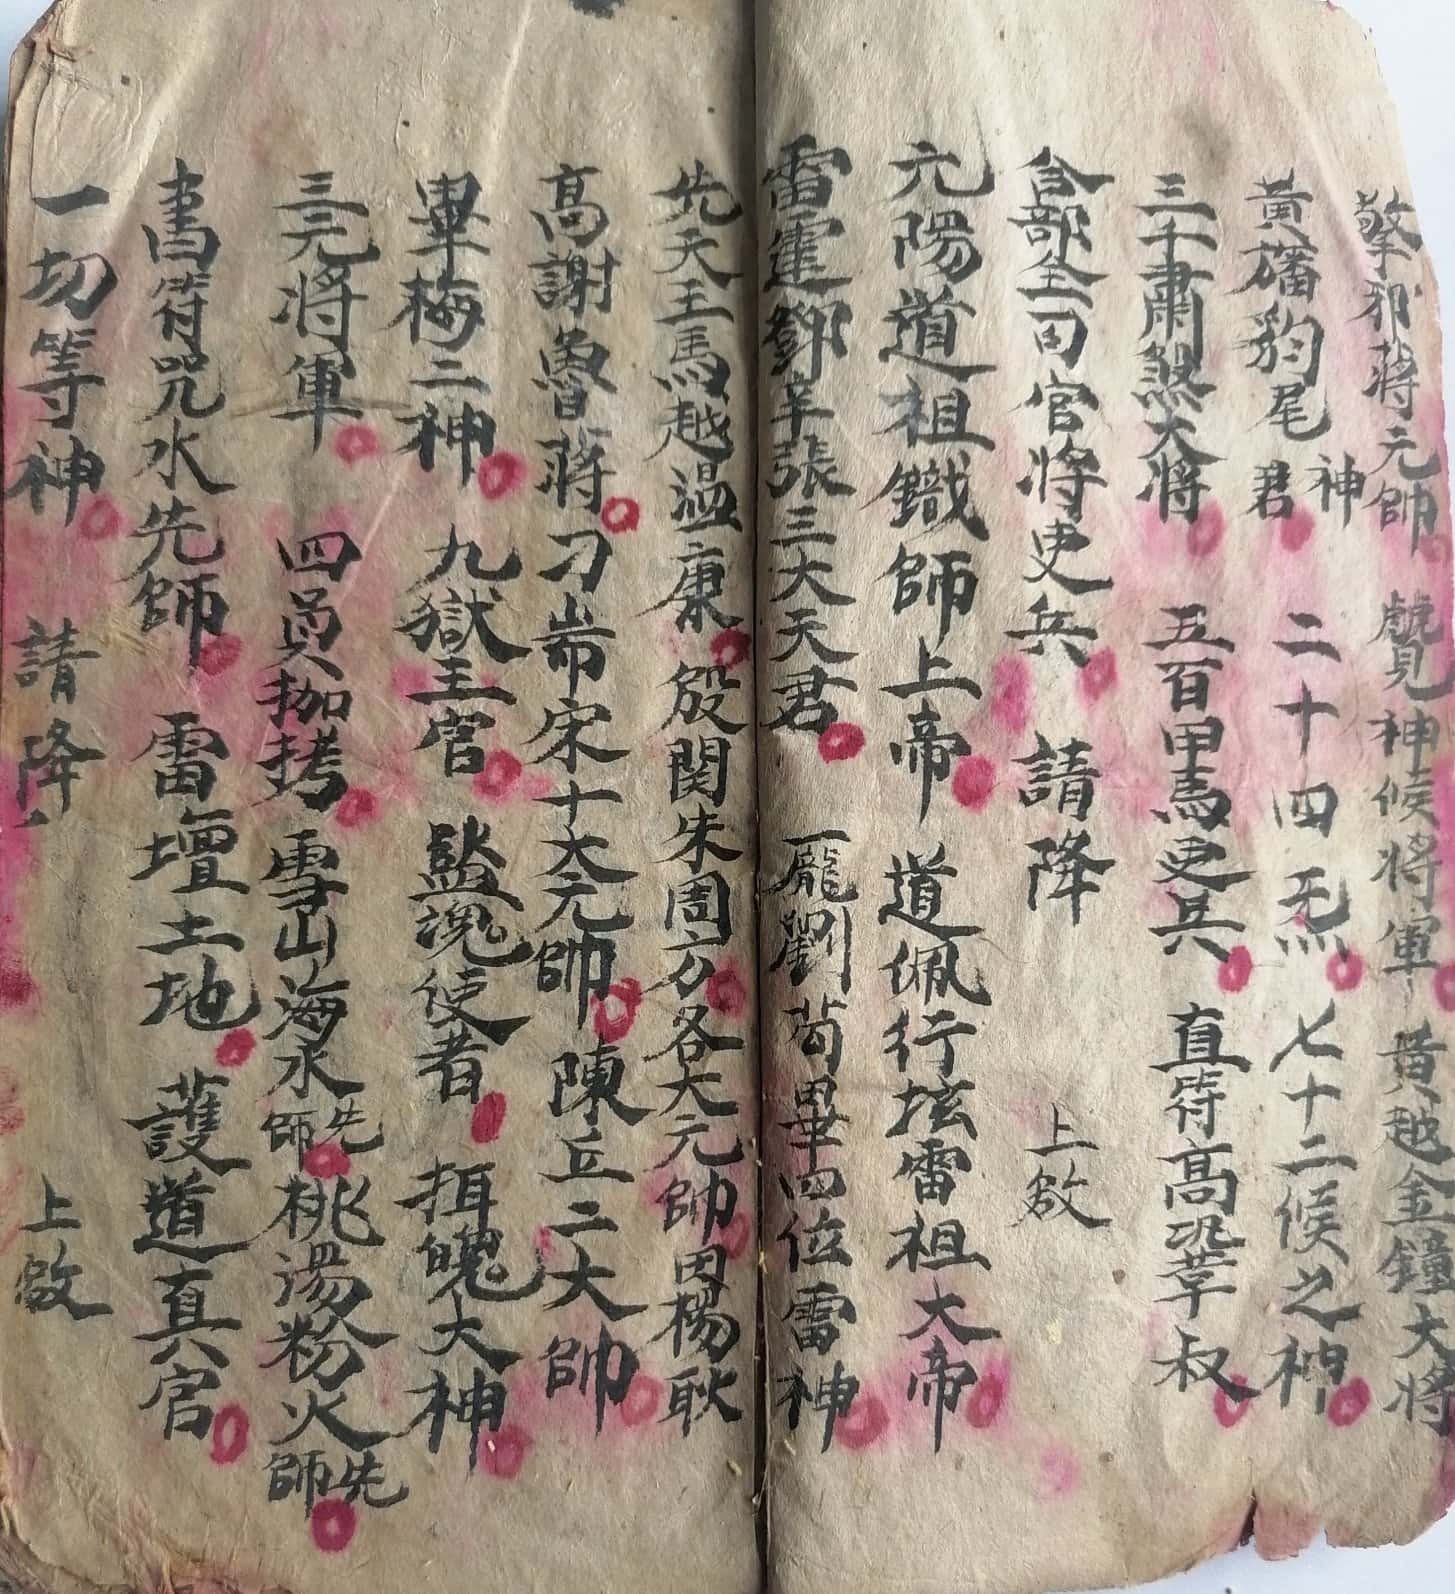 擎邪蔣元帥 神候將軍 黃越金鐘大將
黃旛豹尾神君 二十四炁 七十二候之神
三千肅煞大將 五百甲馬吏兵 直符髙 叔
合部全司官將吏兵 請降 上啟
六陽道祖鐵師上帝 道佩行垓雷祖大帝
雷霆鄧辛張三大天君 龎劉茍畢四位雷神
先天王馬越温康 殷関朱周方各大元帥田楊耿
高謝魯蔣 刁 宋十大元帥 陳丘二大帥
畢梅二神 九獄主官 魂使者 魄大神
三元將軍 四員拷 雪山海水先師 桃湯粉火先師
書符咒水先師 雷壇土地 護道真官
一切等神 請降 上啟